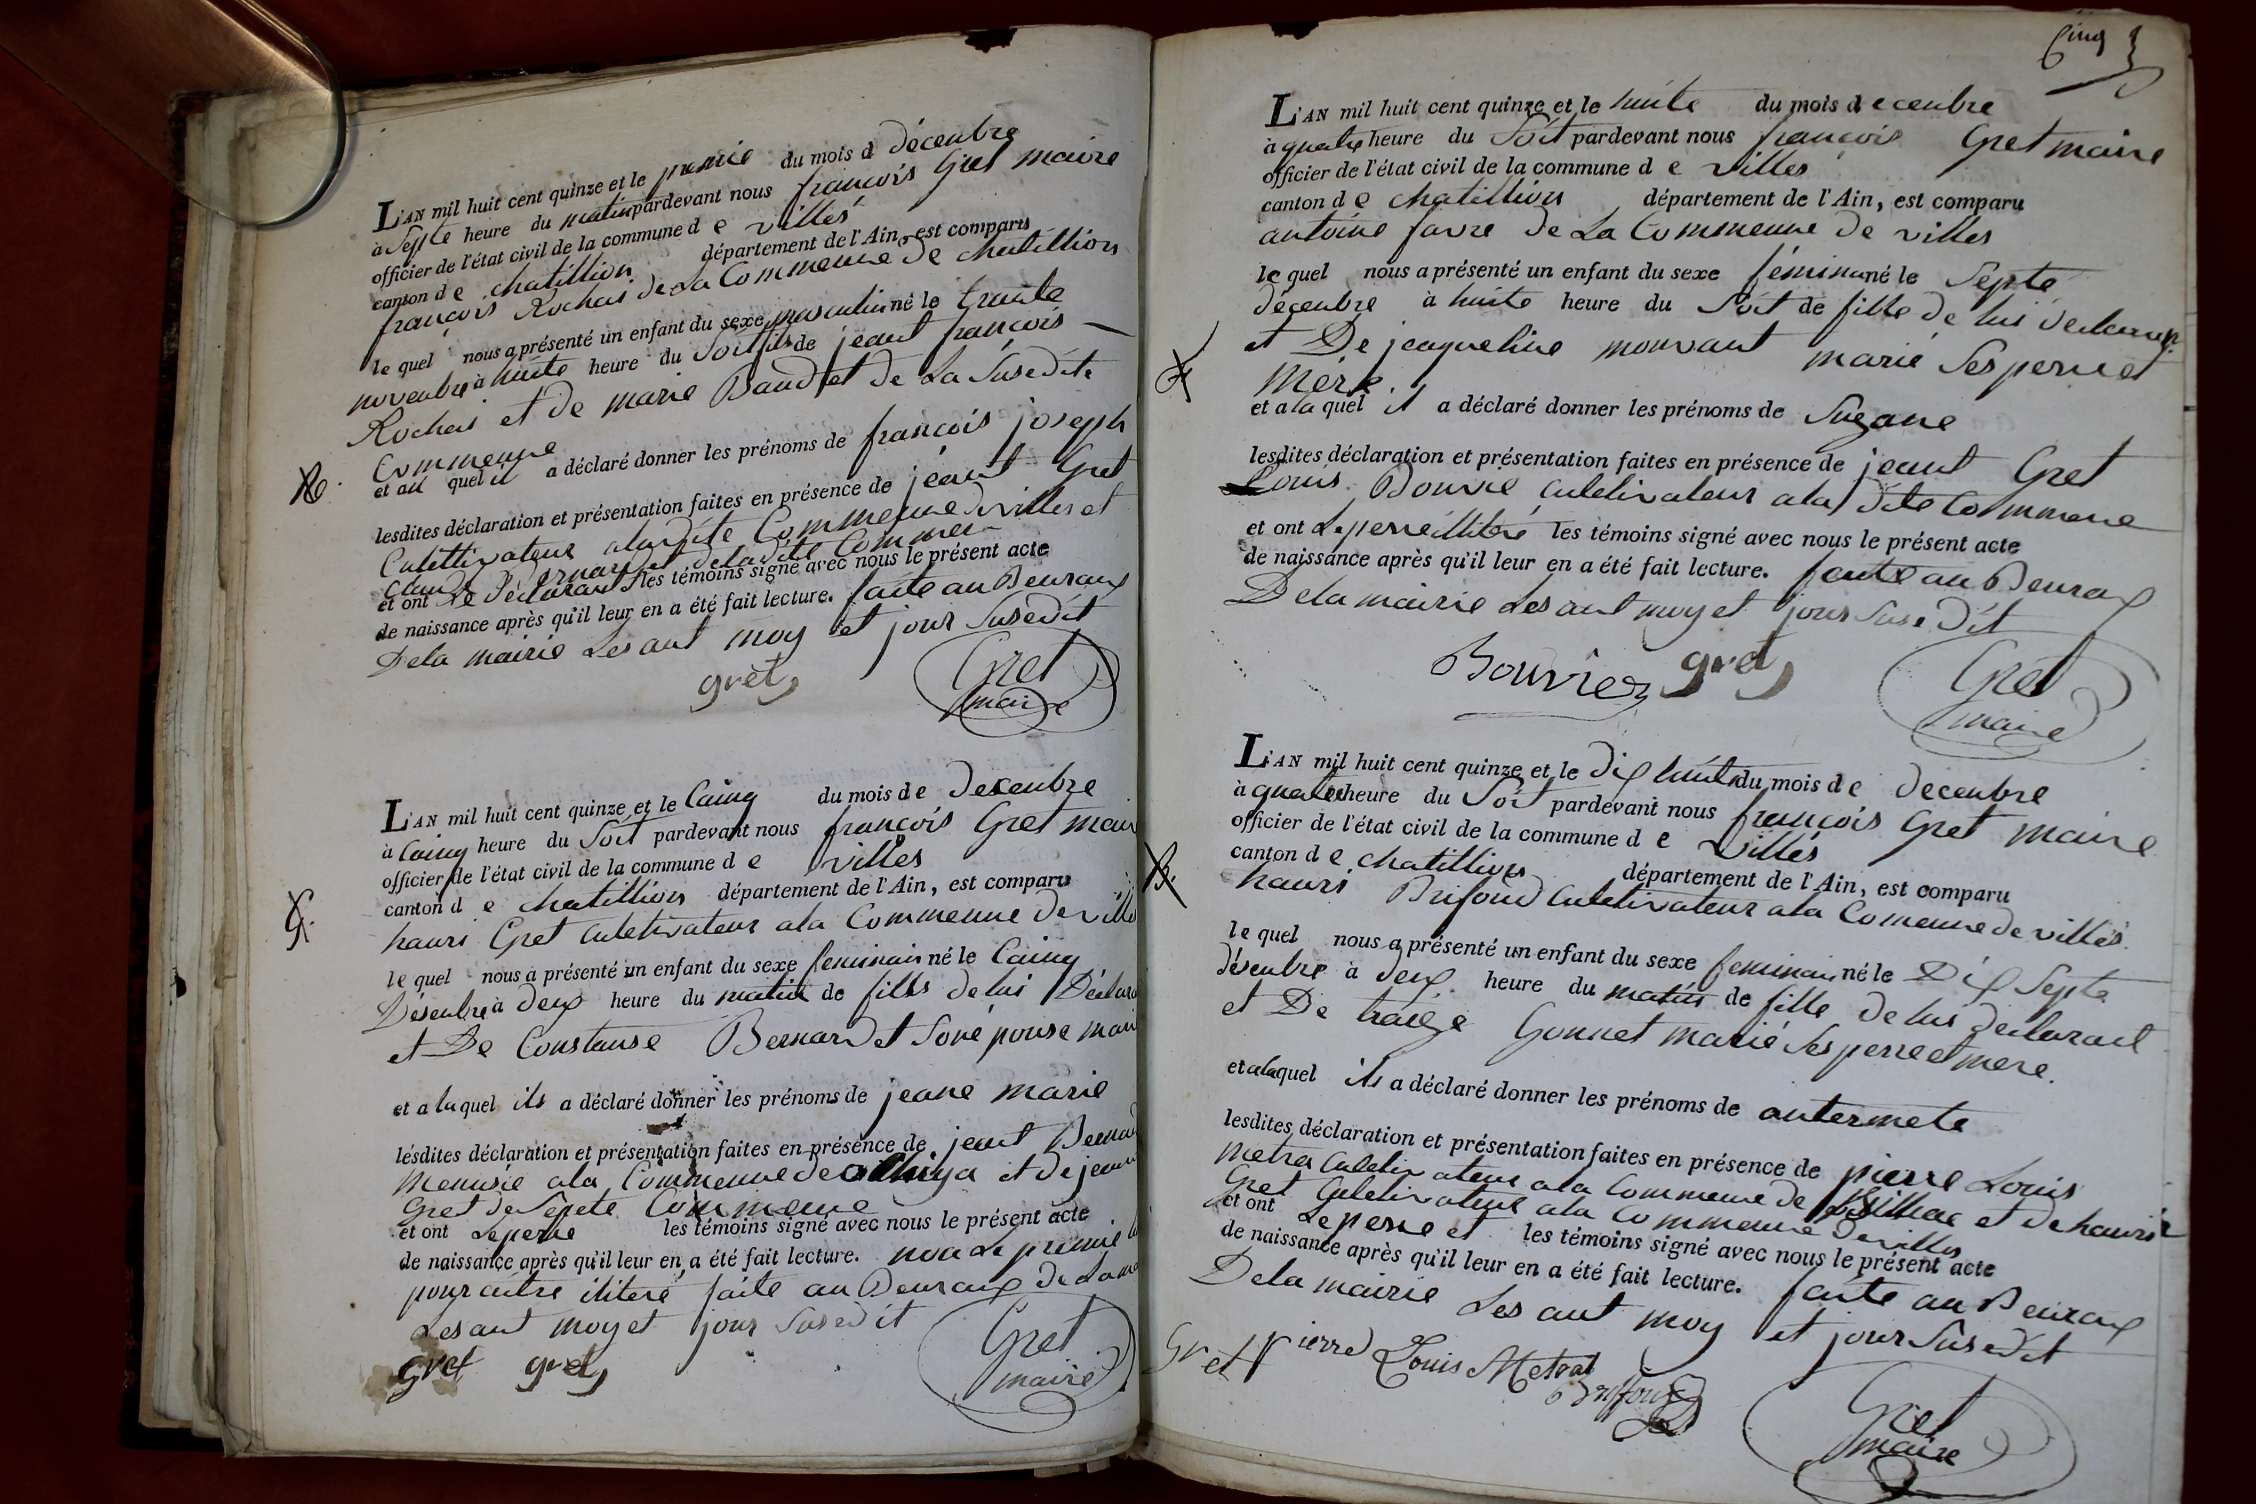 L'AN mil huit cent quinze et le premié du mois d décenbre
à Septe heure du matin pardevant nous francois Gret maire
officier de l'état civil de la commune d e villes
canton d e chatillion département de l'Ain, est comparu
francois Rochai de La Commenne de chatillion
le quel nous a présenté un enfant du sexe masculin né le trante
novenbre à huite heure du Soit fils de jeant francois
Rochai et de marie Baud et de La Susedite
Commenne
et au quel il a déclaré donner les prénoms de francois joseph
lesdites déclaration et présentation faites en présence de jeant Gret
Culettivateur aladite Commenne de villes et
Claude Bernard et deladite Commen
et ont Le Déclarant les témoins signé avec nous le présent acte
de naissance après qu'il leur en a été fait lecture. faite au Beuraux
Dela mairie Les ant moy et jour Susedit
gret Gret
maire
L'AN mil huit cent quinze et le Cainq du mois de decenbre
à Cainq heure du Soit pardevant nous francois Gret maire
officier de l'état civil de la commune d e villes
canton d e chatillion département de l'Ain, est comparu
hauri Gret culetivateur ala Commenne de villes
le quel nous a présenté un enfant du sexe feminain né le Cainq
Désenbre à deux heure du matin de fills de lui Déclara
et De Constanse Bernard et Son é pouse mari
et a la quel ils a déclaré donner les prénoms de jeane marie
lesdites déclaration et présentation faites en présence de jeant Bernard
Menusié ala Commenne de et de jeant
Gret de Sepete Commene
et ont Leperre les témoins signé avec nous le présent acte
de naissance après qu'il leur en a été fait lecture. non Le premié
pour aitre ilitere faite au Beuraux de Lama
Les ant moy et jour Susedit
gret gret Gret
maire
Cinq 5
L'AN mil huit cent quinze et le huite du mois d ecenbre
à quatre heure du Soit pardevant nous francois Gret maire
officier de l'état civil de la commune d e villes
canton d e chatillion département de l'Ain, est comparu
antoine favre de La Commenne de villes
le quel nous a présenté un enfant du sexe féminin né le Septe
décenbre à huite heure du Soit de fille de lui déclaran
et De jeaqueline mouvant marié Ses perre et
Mère
et a la quel il a déclaré donner les prénoms de Suzane
lesdites déclaration et présentation faites en présence de jeant Gret
Louis Bouvié culetivateur ala dite Commene
et ont Leperre illitéré les témoins signé avec nous le présent acte
de naissance après qu'il leur en a été fait lecture. faite au Beuraux
Dela mairie Les ant moy et jour Susedit
Bouvier gret Gret
maire
L'AN mil huit cent quinze et le Dix huite du mois d e decenbre
à quatre heure du Soit pardevant nous francois Gret maire
officier de l'état civil de la commune d e villes
canton d e chatillion département de l'Ain, est comparu
hauri Brifoud culetivateur ala Comenne de villes
le quel nous a présenté un enfant du sexe feminain né le Dix Septe
désenbre à deux heure du matin de fille de lui déclarant
et De traize Gonnet marié Ses perre et mere.
et alaquel ils a déclaré donner les prénoms de antermete
lesdites déclaration et présentation faites en présence de pierre Louis
Metra culetivateur ala Commenne de et de hauri
Gret Culetivateur ala Commenne de villes
et ont Leperre et les témoins signé avec nous le présent acte
de naissance après qu'il leur en a été fait lecture. faite au Beuraux
Dela mairie Les ant moy et jour Susedit
Gret Pierre Louis Metral
Briffoud
Gret
maire